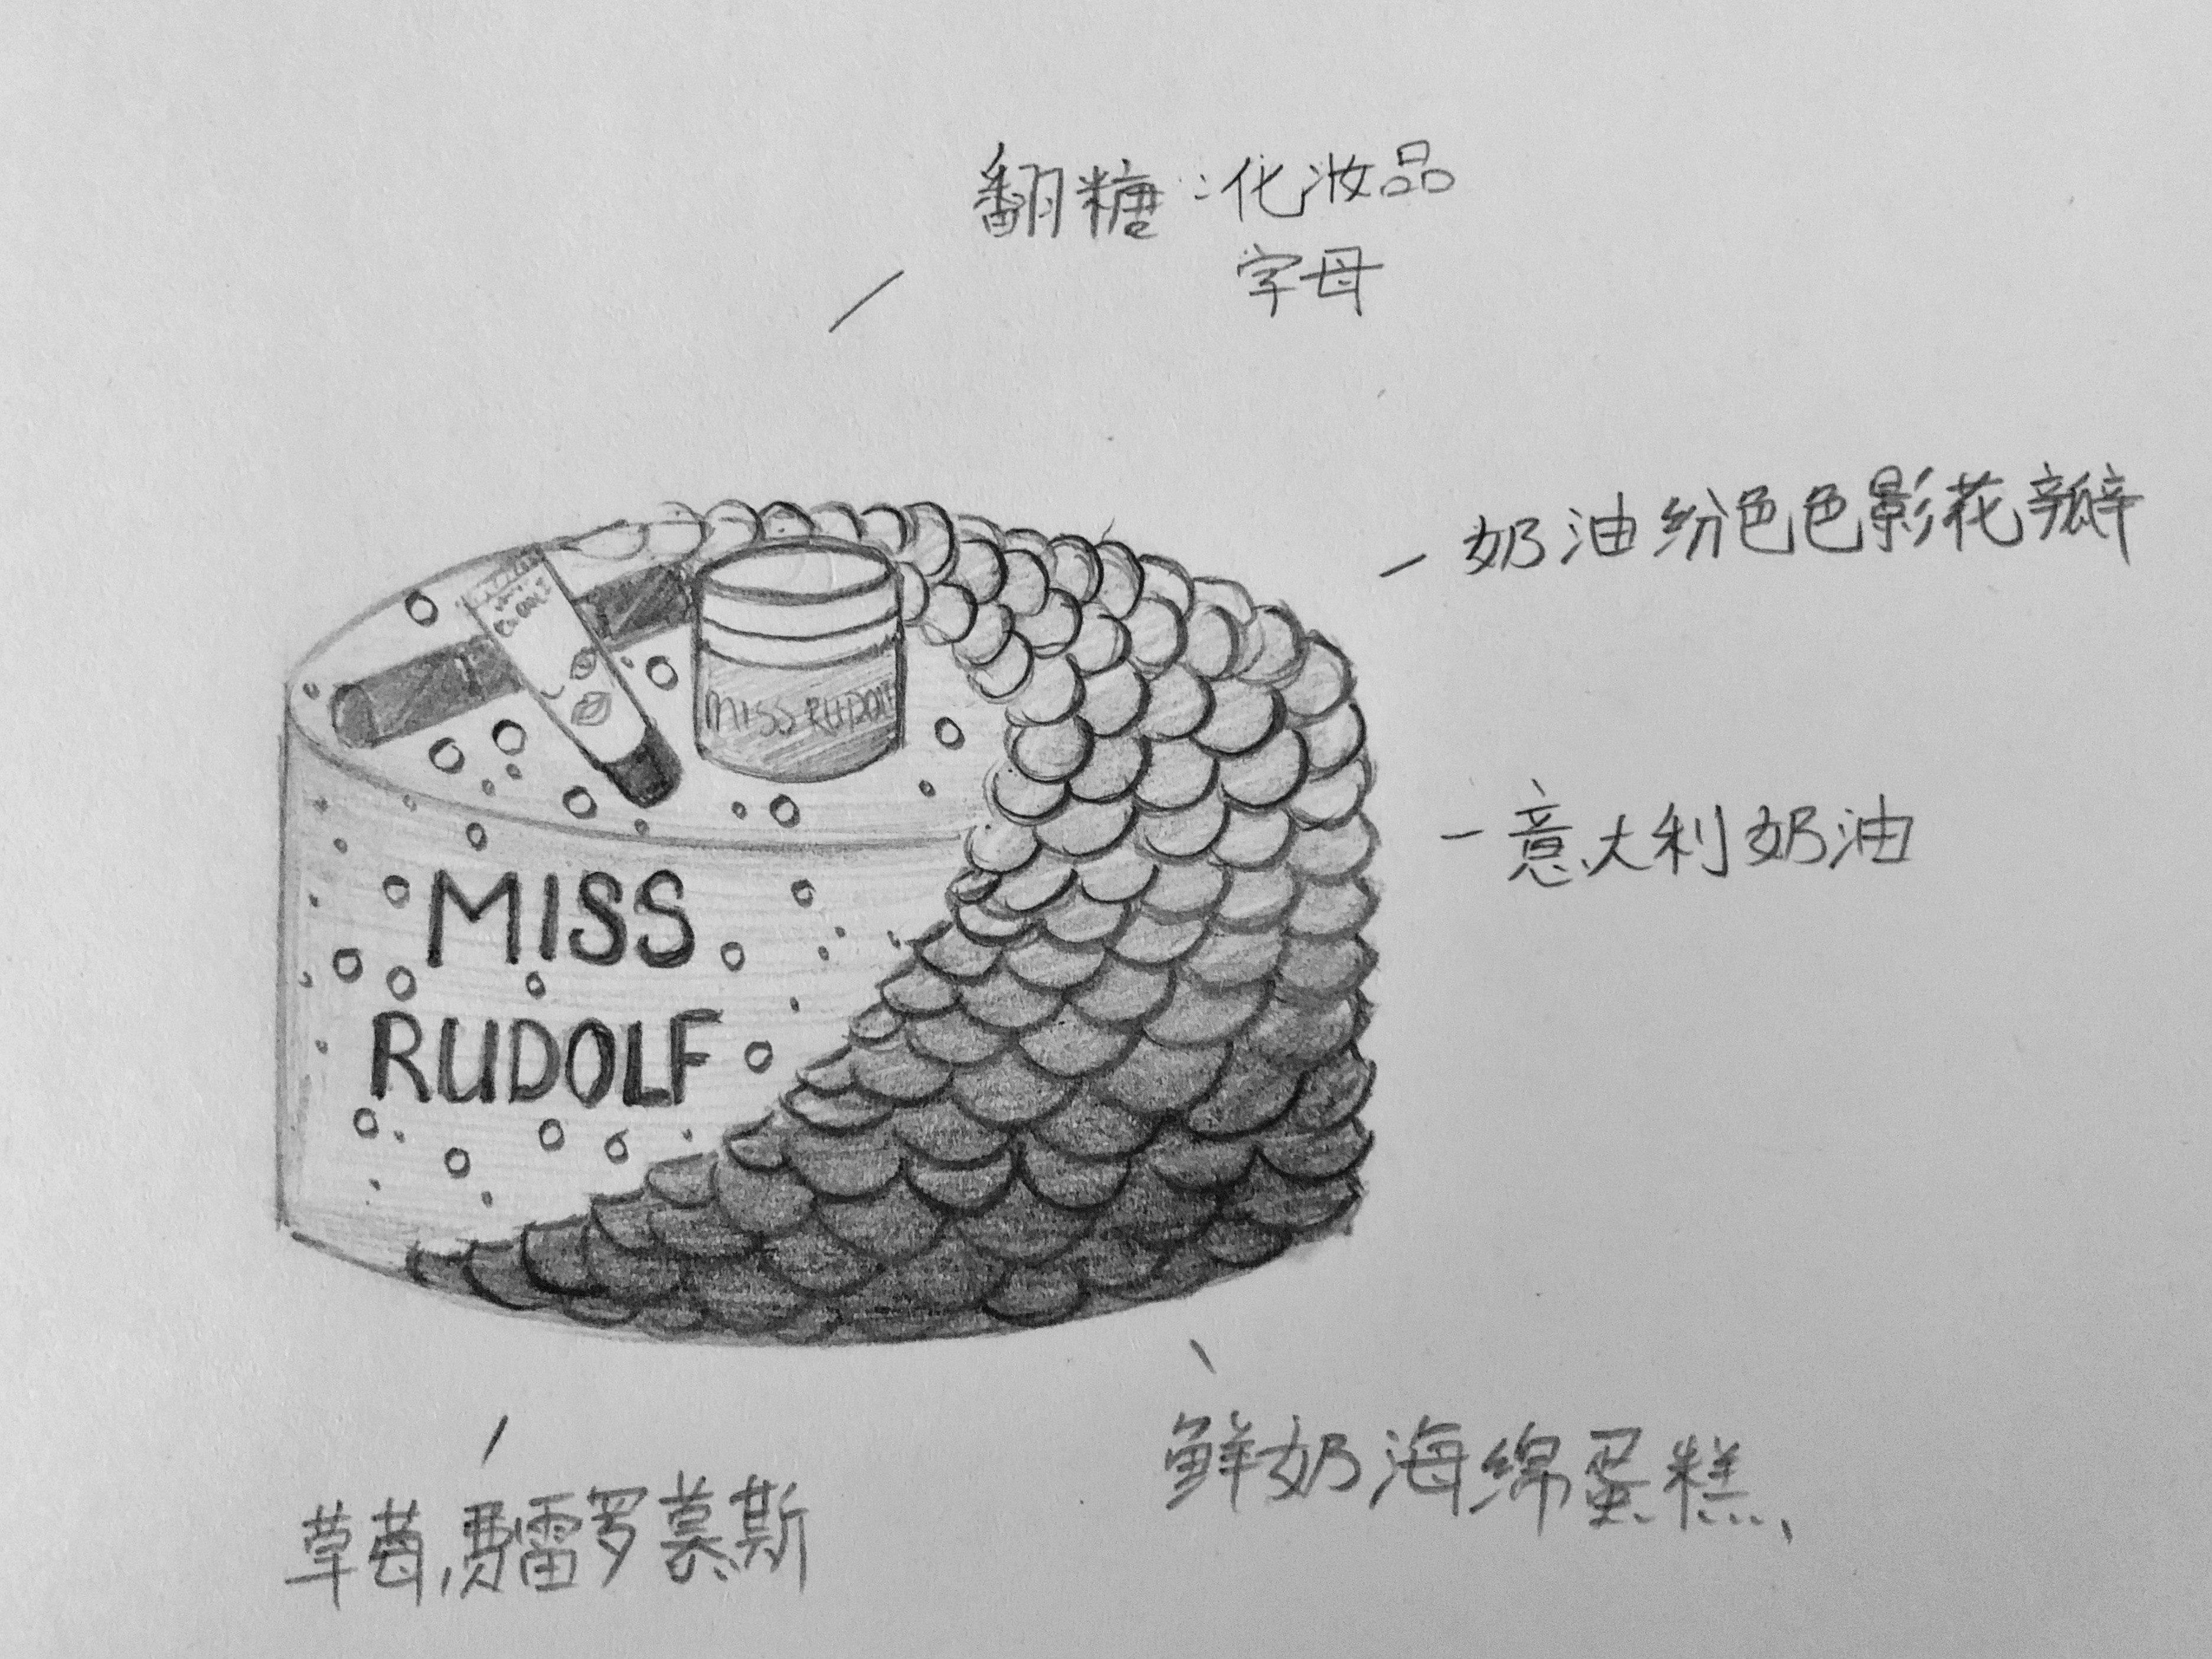 翻糖:化妆品
字母
奶油纷色色影花瓣
意大利奶油
MISS RUDOLF
MISS
RUDOLF
鲜奶海绵蛋糕、
草莓,费雷罗慕斯